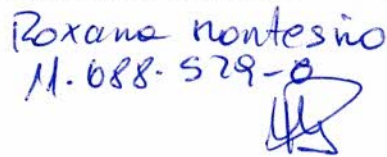 Roxana Montesino
11.688.529-0